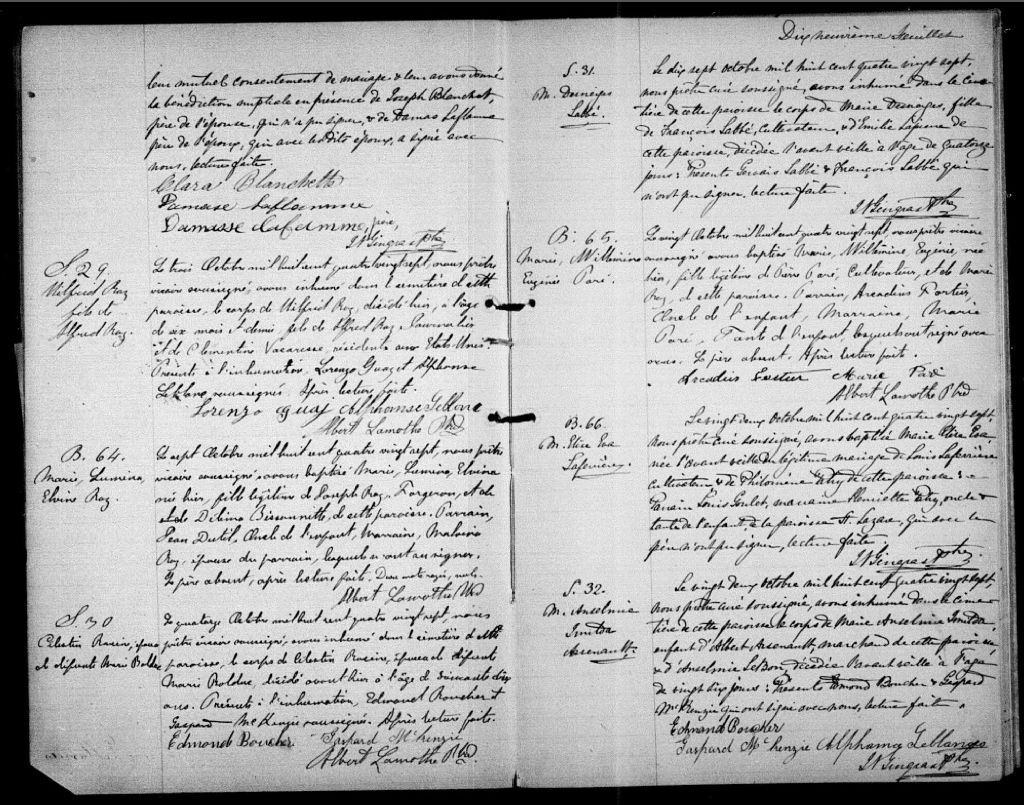 leur mutuel consentement de mariage & leur avons donné
la bénédiction nuptiale en présence de Joseph Blanchet,
père de l'épouse, qui n'a pu signer, & de Damas Laflamme
père de l'époux, qui avec lesdits époux, a signé avec
nous, lecture faite.
Clara Blanchette
Damase Laflamme
Damasse Laflamme, père,
J N Gingras Ptre
S. 29.
Wilfrid Roy
fils de
Alfred Roy.
Le trois Octobre mil huit cent quatre vingt sept, nous prêtre
vicaire soussigné, avons inhumé dans le cimetière de cette
paroisse, le corps de Wilfrid Roy, décédé hier, à l'âge
de six mois et demi, fils de Alfred Roy Journalier
et de Clementine Vacaresse, résidents aux Etats-Unis.
Présents à l'inhumation, Lorenzo Guay et Alphonse
Leblanc soussignés. Après lecture faite.
Lorenzo Guay Alphonse Leblanc
Albert Lamothe Ptre
B. 64.
Marie, Lumina,
Elvine Roy.
Le sept Octobre mil huit cent quatre vingt sept, nous prêtre
vicaire soussigné avons baptisé Marie, Lumina, Elvina
née hier, fille légitime de Joseph Roy, Forgeron, et de
et de Délima Bissonnette, de cette paroisse. Parrain,
Jean Dutil, Oncle de l'enfant, Marraine, Malvina
Roy, épouse du parrain, lesquels n'ont su signer.
Le père absent, après lecture faite. Deux mots rayés, nuls.
Albert Lamothe Ptre
S. 30
Celestin Racine, époux
de défunte Marie Bolduc
Le quatorze Octobre mil huit cent quatre vingt sept, nous
prêtre vicaire soussigné, avons inhumé dans le cimetière de cette
paroisse, le corps de Célestin Racine, époux de défunte
Marie Bolduc, décédé avant hier à l'âge de soixante dix
ans. Présents à l'inhumation, Edmond Boucher et
Gaspard McKenzie soussignés. Après lecture faite.
Edmond Boucher Gaspard McKenzie
Albert Lamothe Ptre
Dix neuvième Feuillet
S. 31.
M. Desneiges
Labbé.
Le dix sept octobre mil huit cent quatre vingt sept,
nous prêtre curé soussigné, avons inhumé dans le cime
tière de cette paroisse le corps de Marie Desneiges, fille
de François Labbé, cultivateur, & d'Emilie de
cette paroisse, décédée l'avant veille à l'âge de quatorze
jours: Présents Gervais Labbé & François Labbé qui
n'ont pu signer. lecture faite.
J N Gingras Ptre
B. 65.
Marie, Willémine
Eugénie Paré.
Le vingt Octobre mil huit cent quatre vingt sept nous prêtre vicaire
soussigné avons baptisé Marie, Willémine Eugénie, née
hier, fille légitime de Pierre Paré, Cultivateur, et de Marie
Roy, de cette paroisse. Parrain, Arcadius Fortier
Oncle de l'enfant, Marraine, Marie
Paré, Tante de l'enfant, lesquels ont signé avec
nous. Le père absent. Après lecture faite.
Arcadius Fortier Marie Paré
Albert Lamothe Ptre
B. 66.
M. Elise Eva
Laferrière.
Le vingt deux octobre mil huit cent quatre vingt sept,
nous prêtre curé soussigné, avons baptisé Marie Elise Eva
née l'avant veille du légitime mariage de Louis Laferrière
cultivateur & de Philomène de cette paroisse:
Parrain Louis Goulet, marraine Henriette oncle &
tante de l'enfant, de la paroisse St. Lazare, qui avec le
père n'ont pu signer, lecture faite.
J N Gingras Ptre
S. 32.
M. Anselmie
Imilda
Arsenault.
Le vingt deux octobre mil huit cent quatre vingt sept,
nous prêtre curé soussigné, avons inhumé dans le cime
tière de cette paroisse le corps de Marie Anselmie Imilda,
enfant d'Albert Arsenault, marchand de cette paroisse
& d'Anselmie LeBon, décédée l'avant veille à l'age
de vingt dix jours: Présents Edmond Boucher & Gaspard
McKenzie qui ont signé avec nous, lecture faite.
Edmond Boucher
Gaspard McKenzie Alphonse Leblanc
J N Gingras Ptre